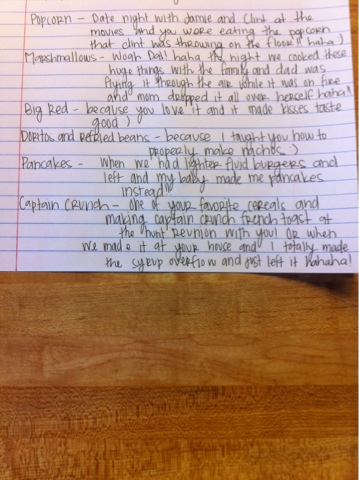 Popcorn - Date night with Jamie and Clint at the
movies and you were eating the popcorn
that clint was throwing on the floor!! haha)
Marshmallows - Woah Dall! haha the night we cooked these
huge things with the family and dad was
flying it through the air while it was on fire
and mom dropped it all over herself haha!
Big Red - because you love it and it made kisses taste
good :)
Doritos and refried beans - because I taught you how to
properly make nachos :)
Pancakes - when we had lighter fluid burgers and
left and my baby made me pancakes
instead
Captain Crunch - one of your favorite cereals and
making captain crunch french toast at
the hunt reunion with you! Or when
we made it at your house and I totally made
the syrup overflow and just left it hahaha!